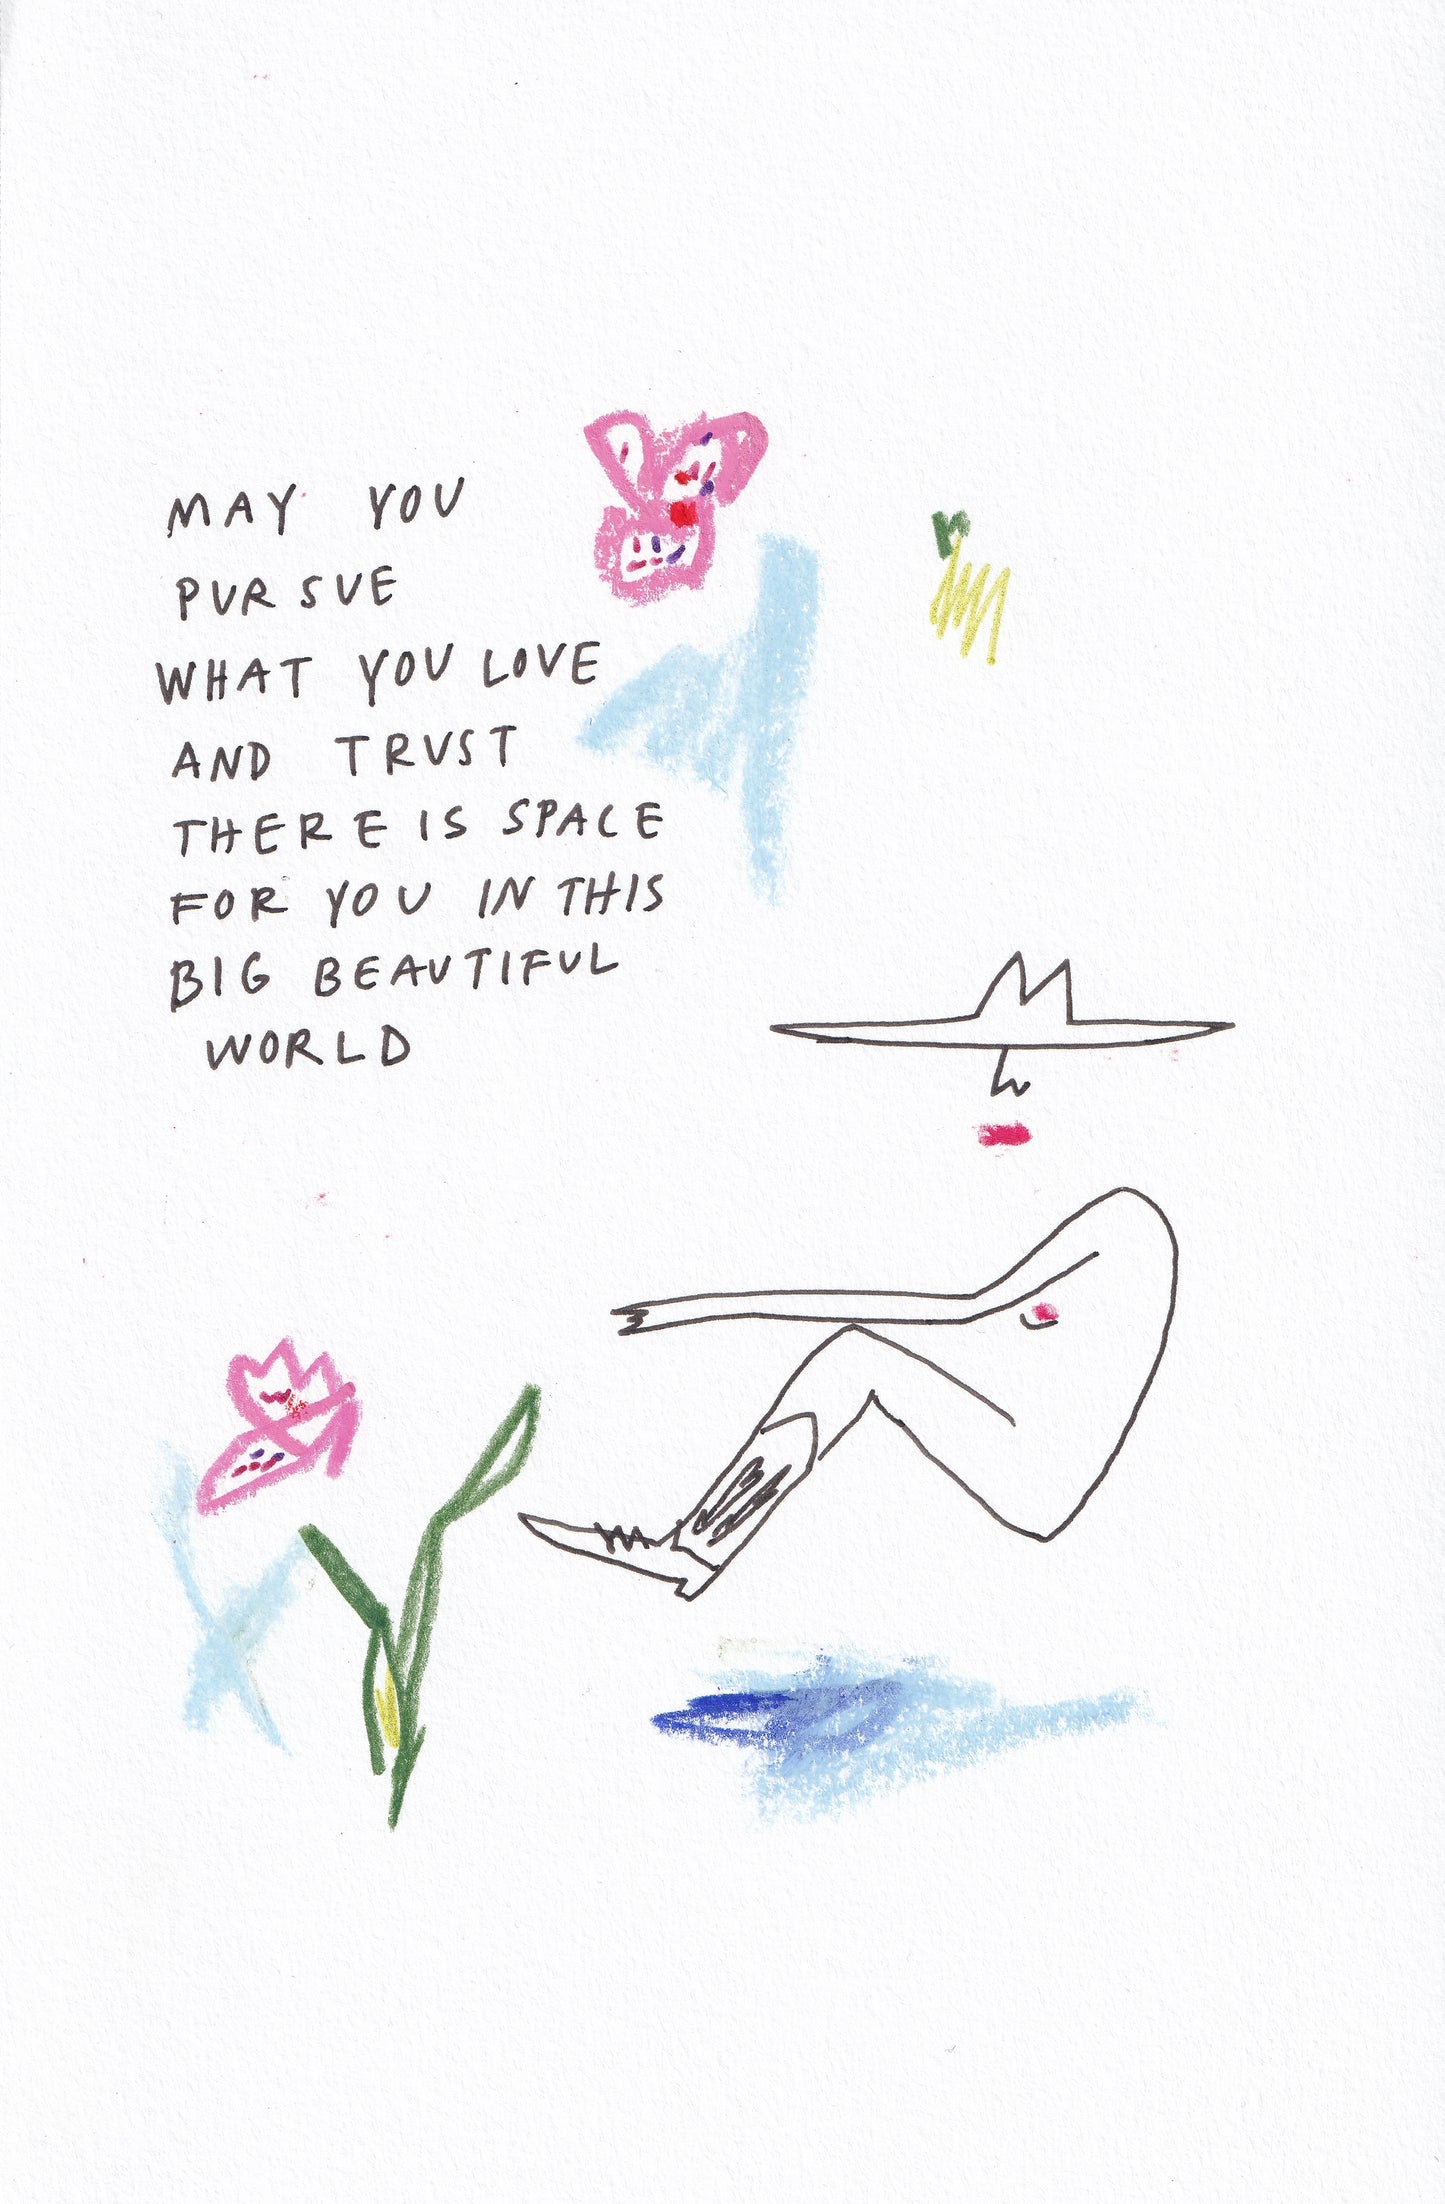 MAY YOU
PURSUE
WHAT YOU LOVE
AND TRUST
THERE IS SPACE
FOR YOU IN THIS
BIG BEAUTIFUL
WORLD